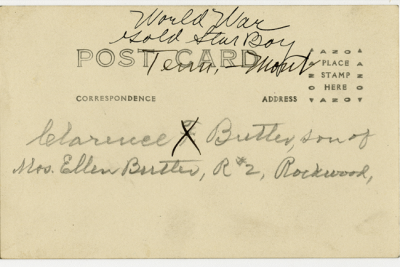 World War
Gold Star Boy
POST CARD
Tenn, - Mont
AZO
PLACE
STAMP
HERE
AZO
CORRESPONDENCE
ADDRESS
Clarence X Butler, son of
Mrs. Ellen Butler, R#2, Rockwood,